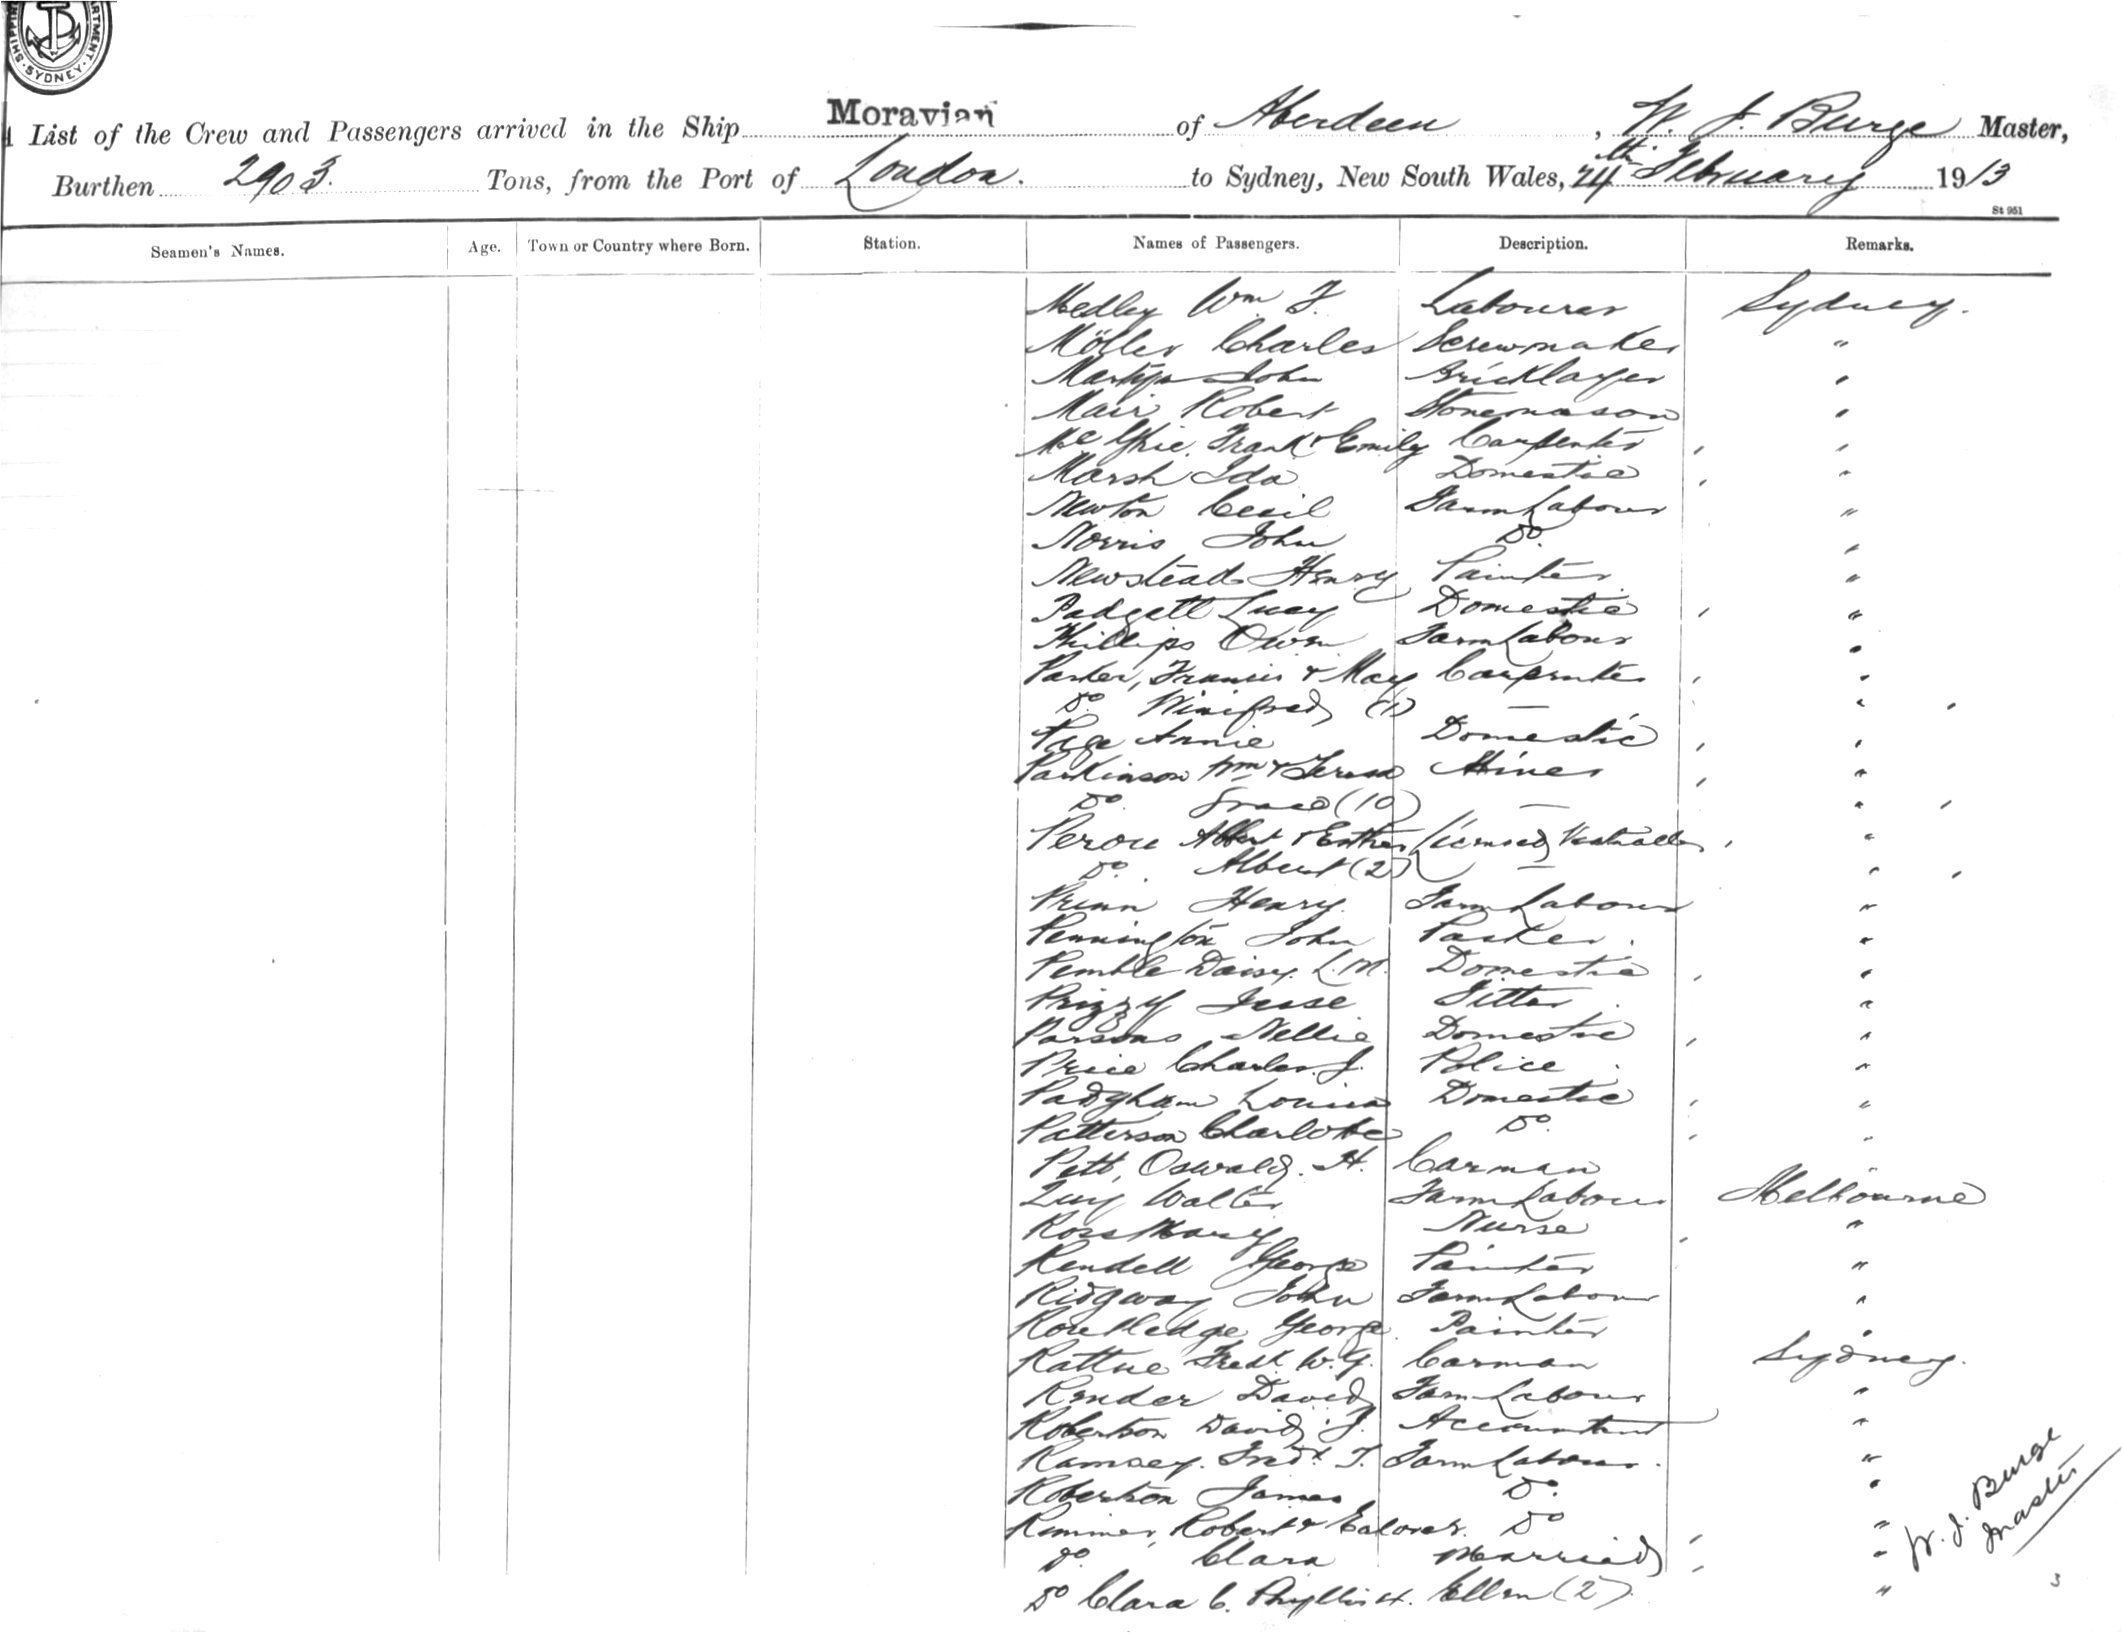 SHIPPING DEPARTMENT · SYDNEY ·
List of the Crew and Passengers arrived in the Ship Moravian of Aberdeen, W. J. Burge Master,
Burthen 2903. Tons, from the Port of London. to Sydney, New South Wales, 24th February 1913
St 951
Seamen's Names. Age. Town or Country where Born. Station. Names of Passengers. Description. Remarks.
Medley Wm. F. Labourer Sydney.
Möller Charles Screwmaker "
John Bricklayer "
Mair Robert Stonemason "
Frank & Emily Carpenter "
Marsh Ida Domestic "
Newton Cecil Farm Labour "
Norris John Do. "
Newstead Henry Painter "
Padgett Lucy Domestic "
Phillips Owen Farm Labour "
Parker, Francis & May Carpenter "
Do. Winifred (1) — "
Page Annie Domestic "
Parkinson Wm & Teresa Miner "
Do. Grace (10) — "
Perou Albert & Esther Licensed "
Do. Albert (2) — "
Prinn Henry. Farm Labour "
Pennington John "
Pemble Daisy. L. M. Domestic "
Prizzy Jesse Fitter "
Parsons Nellie Domestic "
Price Charles. J. Police "
Padgham Louisa Domestic "
Patterson Charlotte Do. "
Pett, Oswald. H. Carman "
Walter Farm Labour Melbourne
Ross Mary Nurse "
Rendell George Painter "
Ridgway John Farm Labour "
Routledge George Painter "
Rattue Fredk. W. G. Carman Sydney.
Render David Farm Labour "
Robertson David J. Accountant "
Ramsey. Fredk. T. Farm Labour "
Robertson James Do. "
Rimmer, Robert & Do "
Do. Clara Married "
Do Clara C. Phyllis H. Ellen (2) "
W. J. Burge
Master
3